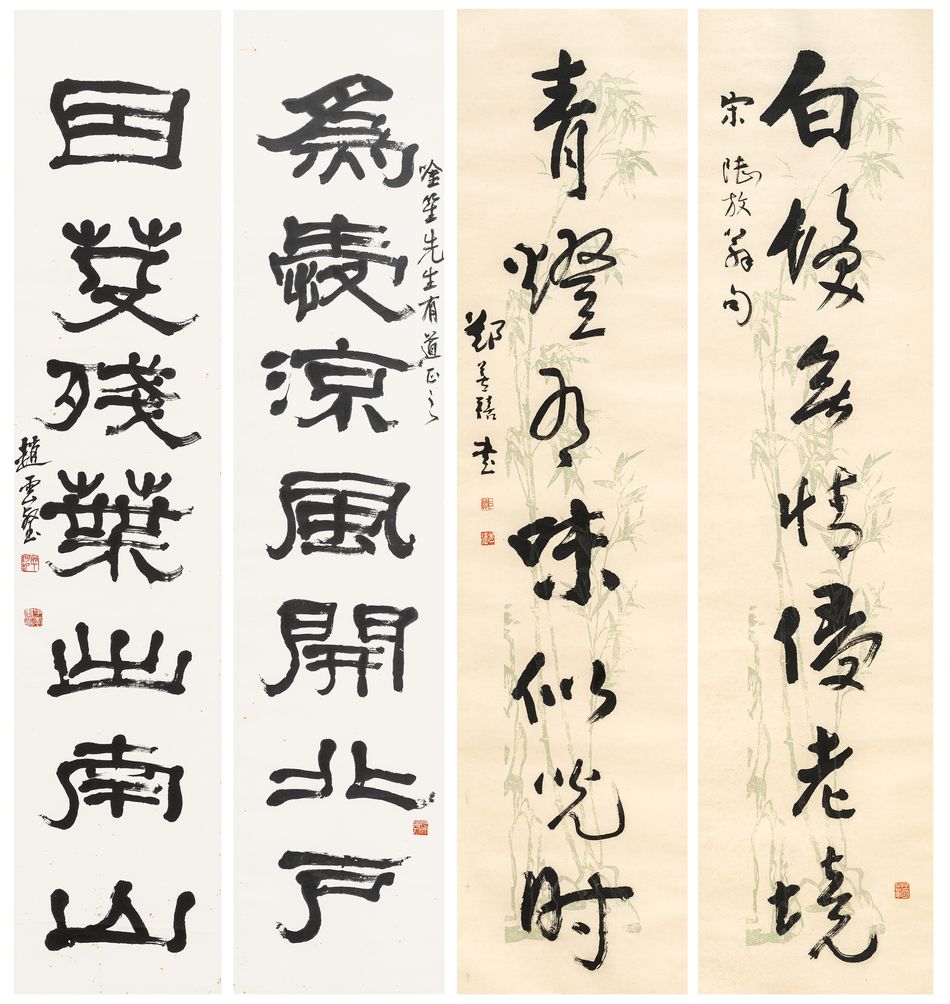 白髮無情侵老境
宋 陸放翁句
青燈有味似兒时
鄭善禧書
為愛涼風開北戶
唫笙先生有道正之
因芟殘葉出南山
趙雲壑